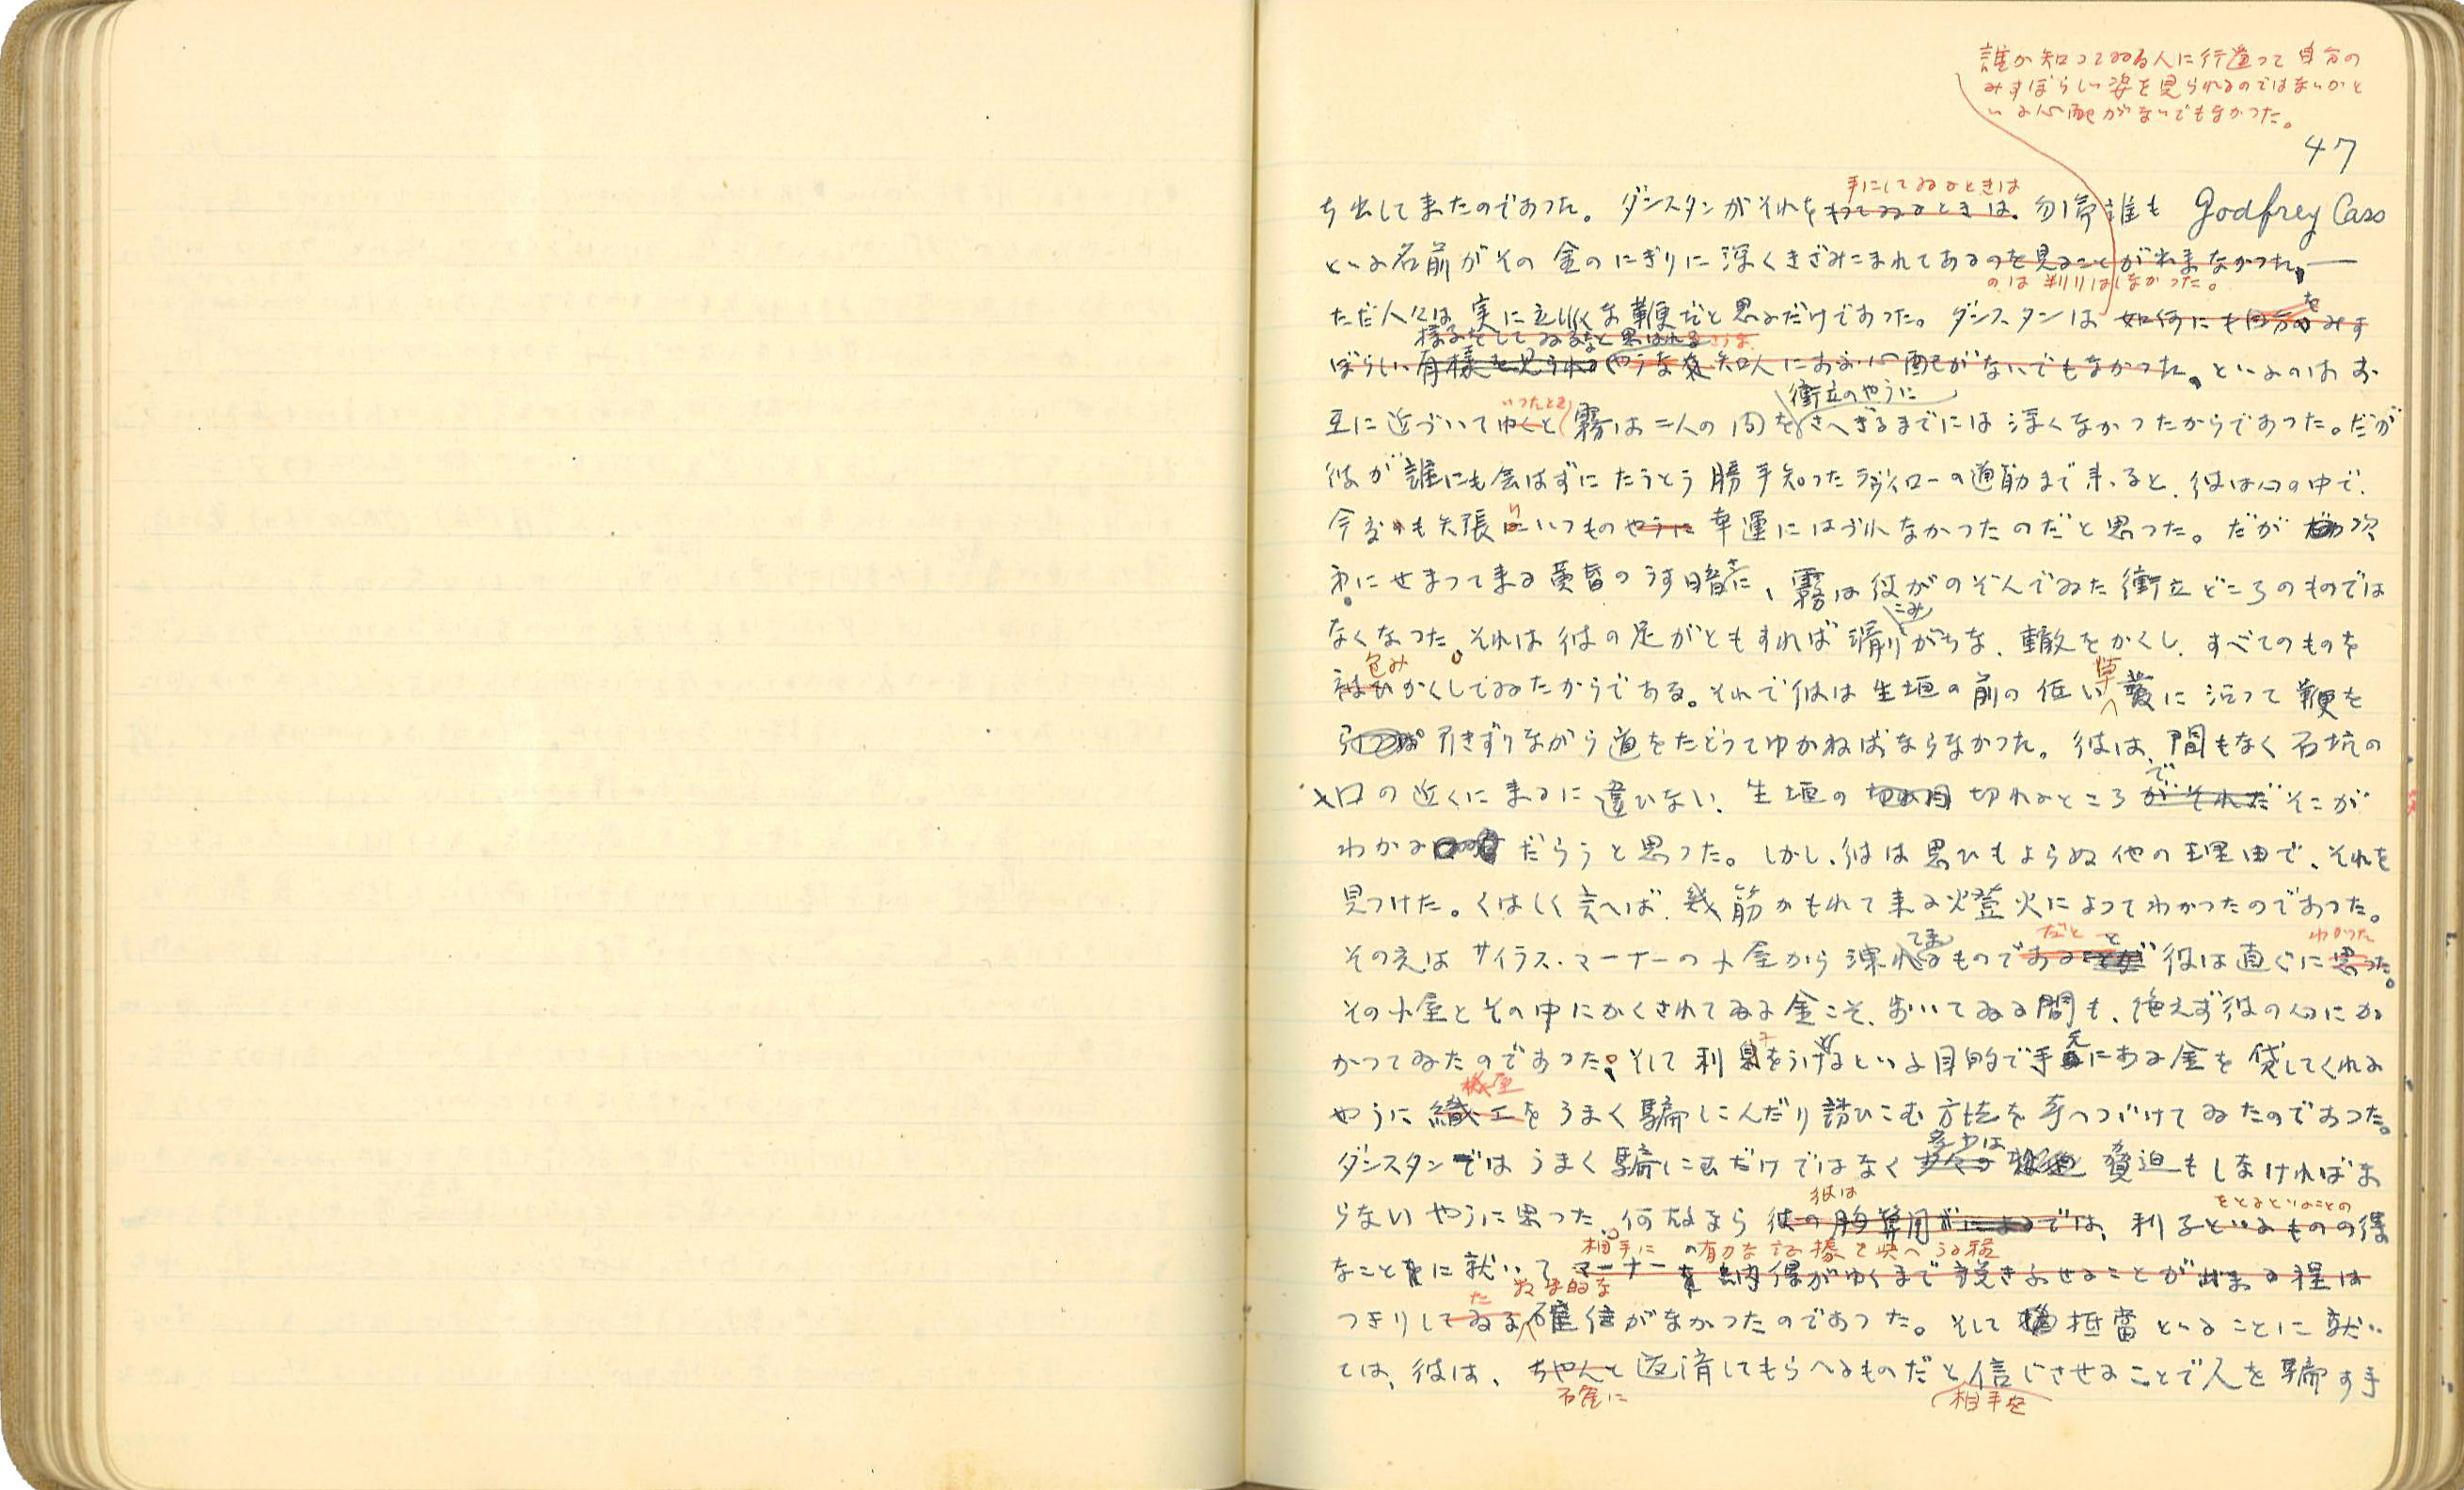 誰か知つてゐる人に行遭つて自分の
みすぼらしい姿を見られるのではないかと
いふ心配がないでもなかつた。
47
手にしてゐるときは
ち出して来たのであつた。ダンスタンがそれをもつてゐるときは、勿論誰も Godfrey Cass
といふ名前がその金のにぎりに深くきざみこまれてあるのを見ることが出来なかつた。―
のは判りはしなかつた。
ただ人々は実に立派な鞭だと思ふだけであつた。ダンスタンは如何にも自分のみす
を
様子をしてゐるなと思はれる
ぼらしい有様を見られるやうな知人にあふ心配がないでもなかつた。といふのはお
衝立のやうに
いつたとき
互に近づいてゆくと霧は二人の間をさへぎるまでには深くなかつたからであつた。だが
彼が誰にも会はずにたうとう勝手知つたラヴィローの道筋まで来ると、彼は心の中で、
り
今度も矢張にいつものやうに幸運にはづれなかつたのだと思つた。だが次
さ
第にせまつて来る黄昏のうす暗に、霧は彼がのぞんでゐた衝立どころのものでは
こみ
なくなつた。それは彼の足がともすれば滑りがちな、轍をかくし、すべてのものを
包み
草
被ひかくしてゐたからである。それで彼は生垣の前の低い叢に沿つて鞭を
引きずりながら道をたどつてゆかねばならなかつた。彼は、間もなく石坑の
で
入口の近くに来るに違ひない、生垣の切れるところがそれだそこが
わかるだらうと思つた。しかし、彼は思ひもよらぬ他の理由で、それを
見つけた。くはしく言へば、幾筋かもれて来る燈火によつてわかつたのであつた。
てゐ
だと
と
わかつた
その光はサイラス・マーナーの小屋から洩れるものであることが彼は直ぐに思つた。
その小屋とその中にかくされてゐる金こそ、歩いてゐる間も、絶えず彼の心にか
子
かつてゐたのであつた。そして利息をうけるといふ目的で手元にある金を貸してくれる
機屋
やうに織工をうまく騙しこんだり誘ひこむ方法を考へつづけてゐたのであつた。
多少は
ダンスタンではうまく騙し込むだけではなく脅迫もしなければな
彼は
をとるといふことの
らないやうに思つた。何故なら彼の胸算用では、利子といふものの得
相手に
の有力な証據を与へうる程
なことに就いてマーナーを納得がゆくまで説きふせることが出来る程は
た
数学的な
つきりしてゐる確信がなかつたのであつた。そして抵当といふことに就い
ては、彼は、ちやんと返済してもらへるものだと信じさせることで人を騙す手
確に
相手を